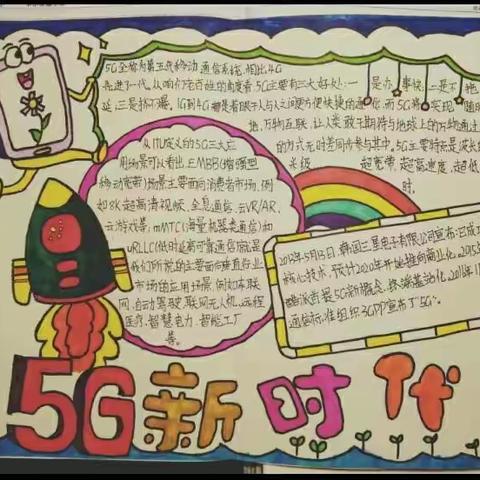 5G全称为第五代移动通信系统,相比4G
先进了一代,从咱们老百姓的角度看,5G主要有三大好处:一是办事快,二是不拖
延,三是挤不爆,1G到4G都是着眼于人与人之间更方便快捷的通信,而5G将实现随时
地,万物互联,让人类敢于期待与地球上的万物通过
的方式无时差同步参与其中,5G主要特点是波长
米级 超宽带,超高速度,超低
时,
从ITU定义的5G三大应
用场景可以看出,EMBB(增强型
移动宽带)场景主要面向消费者市场,例
如8K超高清视频、全息通信、云VR/AR、
云游戏等,mMTC(海量机器类通信)和
URLLC(低时延高可靠通信)就是
我们所说的主要面向垂直行业
市场的应用场景,例如车联
网,自动驾驶,联网无人机,远程
医疗,智慧电力,智能工厂
等。
2013年5月13日,韩国三星电子有限公司宣布,已成功
核心技术,预计2020年开始推向商业化。2015
5G新概念
通信标准组织3GPP宣布了5G
5G新时代